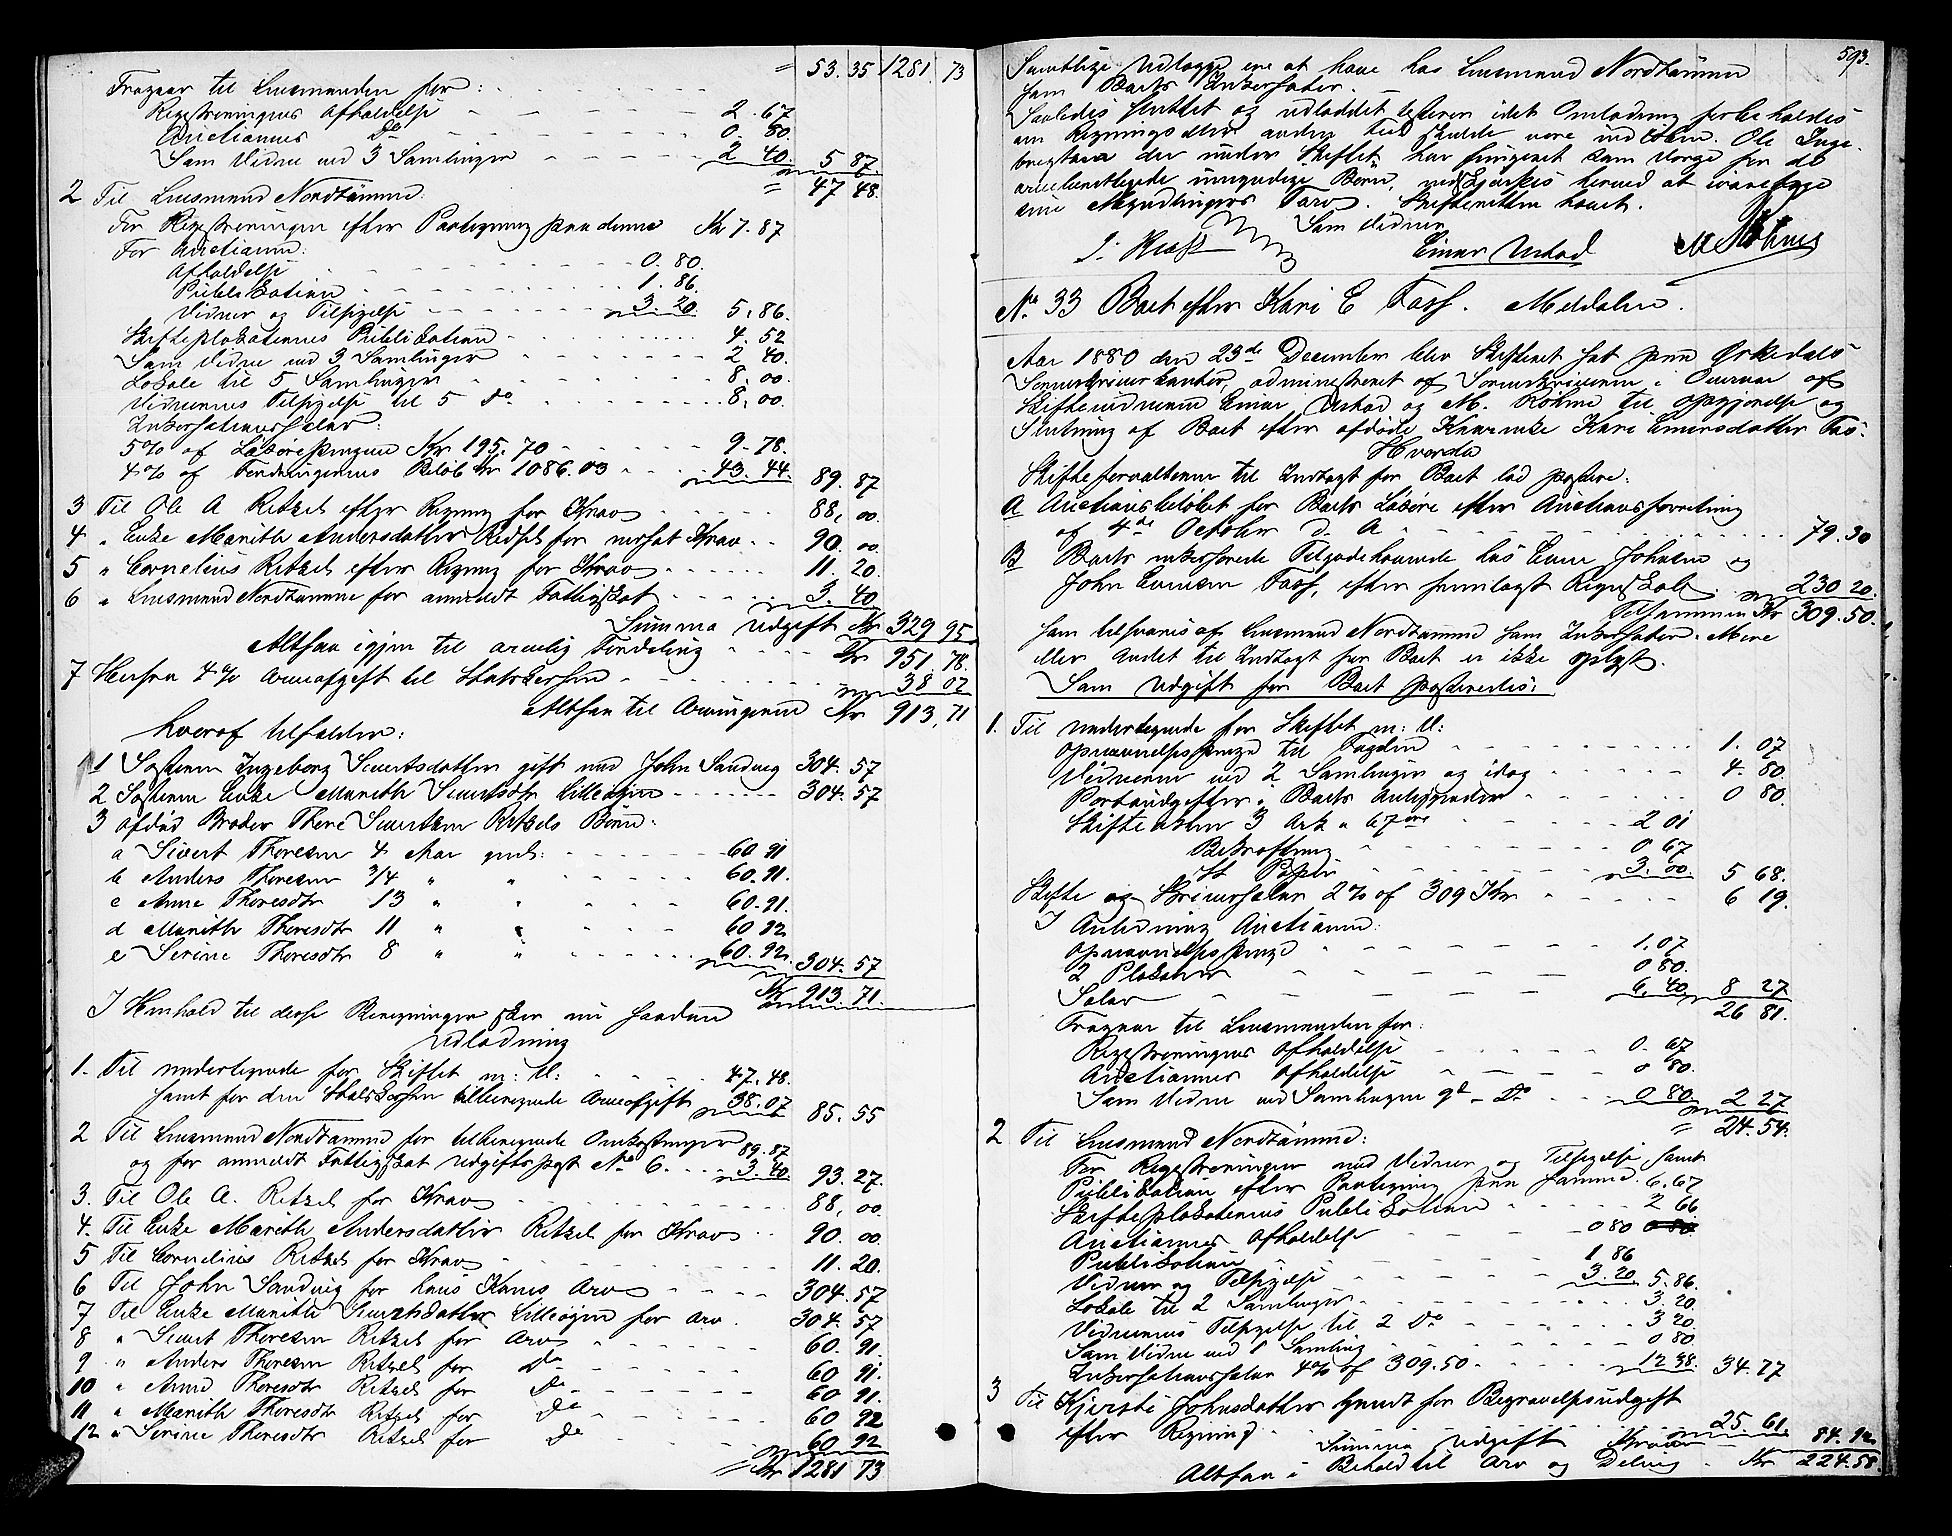 = 53.35 1281 73
Fragaar til Lensmanden for:
Registreringens Afholdelse 2.67
Auctionens Do 0.80
Som Vidne ved 3 Samlinger 2 40. 5 87.
= 47 48.
2 Til Lensmand Nordtømme.
For Registreringen efter Paategning paa denne Kr 7.87
For Auctionen:
Afholdelse 0.80.
Publikation 1.86.
Vidner og Tilsigelse 3.20. 5.86.
Skifteplakatens Publikation 4.52
Som Vidne ved 3 Samlinger 2 40.
Lokale til 5 Samlinger 8.00.
Vidnernes Tilsigelse til 5 do 8.00.
Inkassationssalær:
5% af Løsørepengene Kr 195.70 9.78.
4% af Fordringernes Beløb Kr 1086.03 43.44. 89.87
3 Til Ole A Ritzel efter Regning for Krav 88,00.
4 " Enke Marith Andersdatter Ritzel for Krav 90.00.
5 " Cornelius Ritzel efter Regning for Krav 11.20.
6 " Lensmand Nordtømme for anmeldt Fattigskat 3.40
Summa Udgift Kr 329 95
Altsaa igjen til arvelig Fordeling Kr 951.78.
7 Herfra 4% Arveafgift til Statskassen 38 07
Altsaa til Arvingerne Kr 913,71
hvoraf tilfalder:
1 Søsteren Ingeborg Sivertsdatter gift med John Sandvig 304.57
2 Søsteren Enke Marith Sivertsdtr Lilleøien 304.57
3 afdød Broder Thore Sivertsen Ritzels Børn:
a Sivert Thoresen 4 Aar gml: 60 91
b Anders Thoresen 3/4 " " 60.91.
c Anne Thoresdtr 13 " " 60.91.
d Marith Thoresdtr 11 " " 60 92
e Serine Thoresdtr 8 " " 60.92. 304.57
Kr 913.71.
I Henhold til disse Beregninger sker nu saadan
Udlodning
1. Til undertegnede for Skiftet m: V: 47.48.
samt for den Statskassen tilkommende Arveafgift 38.07 85.55
2 Til Lensmand Nordtømme for tilkommende Omkostninger 89.87
og for anmeldt Fattigskat Udgiftspost No 6. 3.40 93.27.
3. Til Ole A. Ritzel for Krav 88,00
4. Til Enke Marith Andersdatter Ritzel for Krav 90.00.
5 Til Cornelius Ritzel for Krav 11.20.
6 Til John Sandvig for hans Kones Arv 304.57
7 Til Enke Marith Sivertsdatter Lilleøien for Arv. 304.57
8 " Sivert Thoresen Ritzel for Arv 60 91.
9 " Anders Thoresen Ritzel for Do 60 91.
10 " Anne Thoresdtr Ritzel for Do 60 91.
11 " Marith Thoresdtr Ritzel for Do 60 92
12 " Serine Thoresdtr Ritzel for Do 60 92
= Kr 1281 73
593.
Samtlige Udlagte ere at have hos Lensmand Nordtømme
som Boets Inkassator.
Saaledes sluttet og udloddet idet Omlodning forbeholdes
om Regnings eller anden Feil skulde være indløben. Ole
der under Skiftet har fungeret som Værge for de
umyndige Børn, herved at iagttage
sine Myndlingers Tarv. Skifteretten hævet.
Som Vidner
Einar Ustad M Røhme
No 33 Boet efter Kari E Foss. Meldalen.
Aar 1880 den 23de December blev Skifteret sat paa Ørkedals
Sorenskriverkontor, administreret af Sorenskriveren i Overvær af
Skiftevidnerne Einar Ustad og M. Røhme til Opgjørelse og
Slutning af Boet efter afdøde Kari Einersdatter Fos.
Hvorda
Skifteforvalteren til Indtægt for Boet lod postere:
A Auctionsbeløbet for Boets Løsøre efter Auctionsforretning
af 4de October d. A 79.30
B Boets inkasserede Tilgodehavende hos Even Johnsen og
John Evensen Foss, efter fremlagt Regnskab 230 20.
Tilsammen Kr 309.50.
som tilsvares af Lensmand Nordtømme som Inkassator. Mere
eller Andet til Indtægt for Boet er ikke oplyst.
Som Udgift for Boet posteredes:
1. Til undertegnede for Skiftet m: V:
Opnævnelsespenge til Fogden 1.07
Vidnerne ved 2 Samlinger og idag 4.80.
Portoudgifter i Boets Anliggender 0 80.
Skifteakten 3 Ark a 67 øre 2 01
Bekræftning 0 67
St Papir 3.00. 5 68.
Skifte og Skriversalær 2% af 309 Kr 6 19.
I Anledning Auctionen:
Opnævnelsespenge 1.07
2 Plakater 0 80.
Salær 6.40 8 27
26 81.
Fragaar til Lensmanden for:
Registreringens Afholdelse 0.67
Auctionens Afholdelse 0 80.
Som Vidne ved Samlingen 9d Do 0 80 2 27
= 24.54.
2 Til Lensmand Nordtømme:
For Registreringen med Vidner og Tilsigelse samt
Publikation efter Paategning paa samme. 6.67
Skifteplakatens Publikation 2 66
Auctionens Afholdelse 0 80 0 80
Publikation 1 86
Vidner og Tilsigelse 3.20 5.86.
Lokale til 2 Samlinger 3.20.
Vidnernes Tilsigelse til 2 Do 3 20.
Som Vidne ved 1 Samling 0 80
Inkassationssalær 4% af 309.50 12 38. 34.77
3 Til Kjersti Johnsdatter for Begravelsesudgift
efter Regning 25.61.
Summa Udgift Kroner 84.92
Altsaa i Behold til Arv og Deling Kr 224.58.